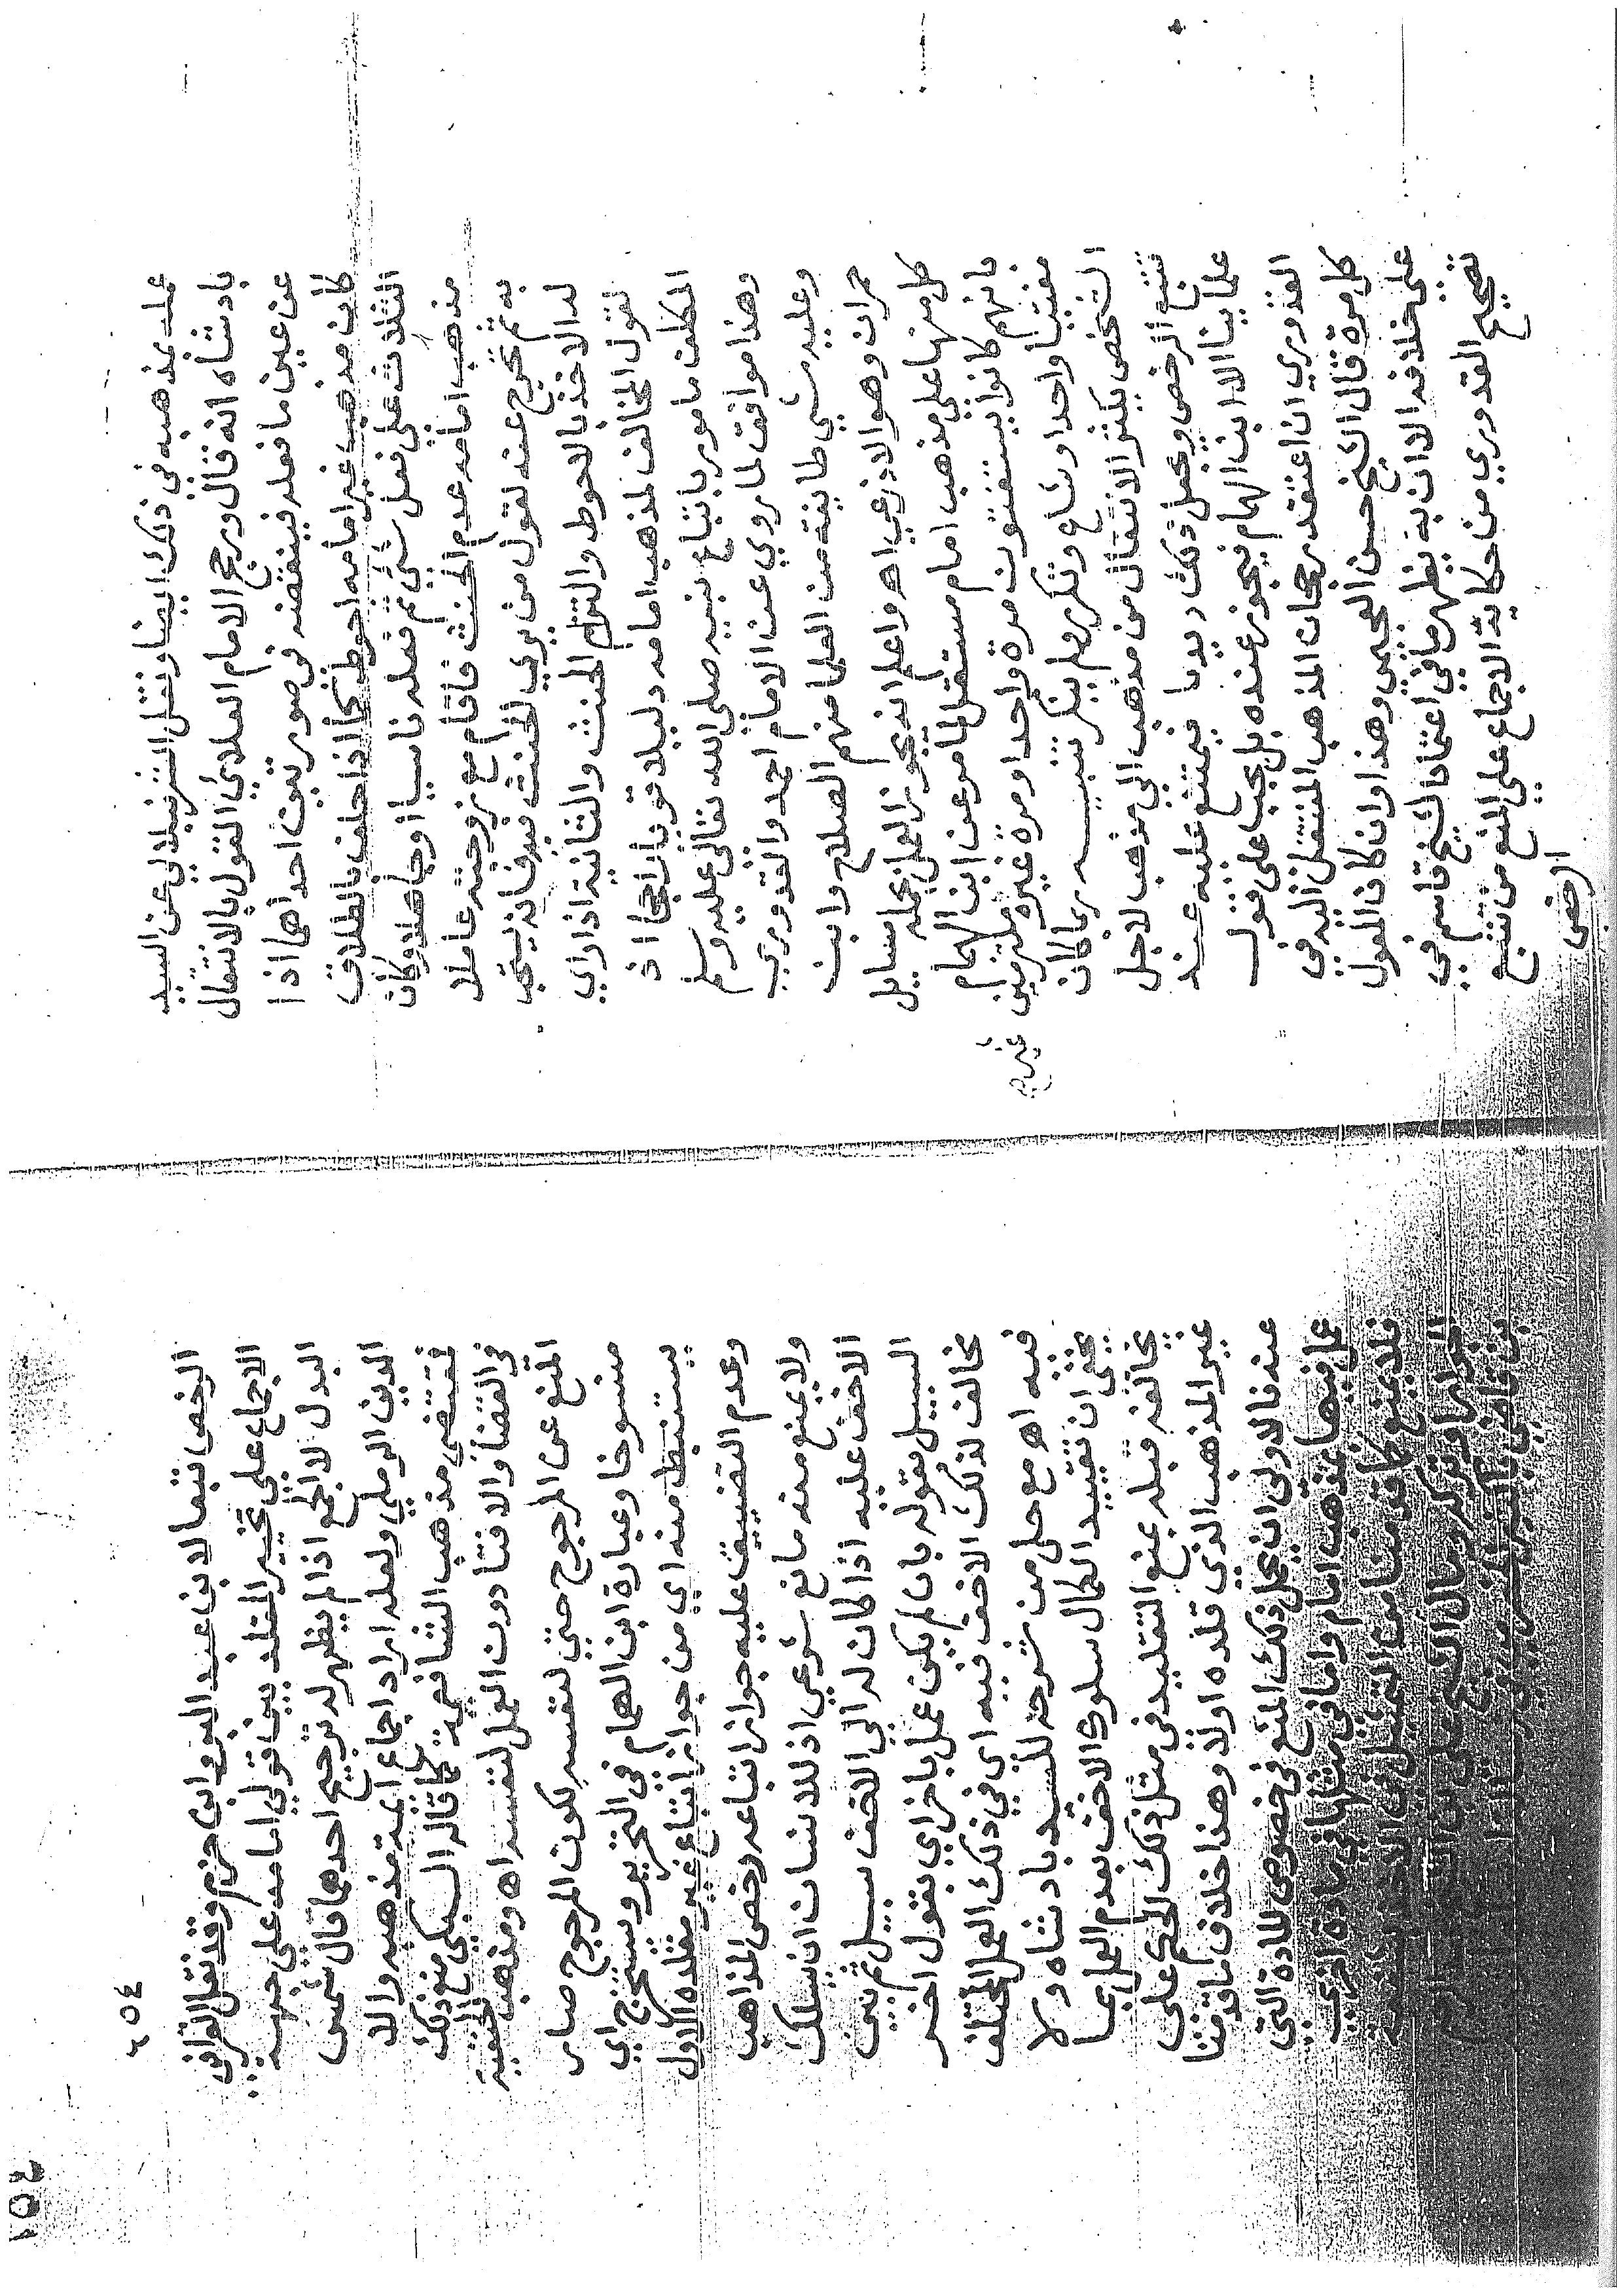 عمله بمذهبه في ذلك ايضا ونقل الشرنبلالي عن السيد
بادشاه انه قال ورجح الامام العلائي القول بالانتقال
عن عين ما فعله فينقضه في صورتين احداهما اذا
كان مذهب غير امامه احوط كما اذا حلف بالطلاق
الثلاث على فعل شي ثم فعله ناسيا او جاهلا وكان
مذهب امامه عدم الحنث فاقام مع زوجته عاملا
به ثم تخرج عنه لقول من يري الحنث فيه فانه يستحب
له الاخذ بالاحوط والتزام الحنث والثانية اذا راي
لقول المخالف لمذهب امامه دليلا قويا راجحا اذ
المكلف مامور باتباع نبيه صلى الله تعالى عليه وسلم
وهذا موافق لما روي عن الامام احمد والقدوري
وعليه مشي طايفة من العلما منهم الصلاح وابن
حمران وهو الاذرعي اه واعلم انه يجوز العمل بجملة مسايل
كل منها علي مذهب امام مستقل لما مر عن ابن الهمام
فانهم كانوا يستفتون مرة واحدا ومرة غيره ملتزمين
غير م
مفتيا واحدا وشاع وتكرر ولم ينكر تنبيه ربما كان
الشخص يكثر الانتقال من مذهب الي مذهب لاجل
تتبع الرخص ويجعل ذلك ديدنا فيمتنع عليه عند
علماينا الا ابن الهمام فيجوز عنده بل يجب علي قول
القدوري ان اعتقد رجحان المذهب المنتقل اليه في
كل مرة قال الشيخ حسن العجمي وهذا وان كان المعول
على خلافه الا ان به يظهر ما في اعتماد الشيخ قاسم في
تصحيح القدوري من حكاية الاجماع علي المنع من تتبع
الرخص
٤٥٤
الرخص تبعا لابن عبد البر وابن حزم وقد نقل القرافي
الاجماع علي تخيير المقلد بين قولي امامه علي جهة
البدل لا الجمع اذا لم يظهر له ترجيح احدهما قال شمس
الدين الرملي ولعله اراد اجماع ايمة مذهبه والا
فمقتضي مذهب الشافعية كما قاله السبكي منع ذلك
في القضا والافتا دون العمل لنفسه اه ومذهب الحنفية
المنع عن المرجوح حتي لنفسه لكون المرجوح صار
منسوخا وعبارة ابن الهمام في التحرير ويستخرج اي
يستنبط منه اي من جواز اتباع غير مقلده الاول
وعدم التضييق عليه جواز اتباعه رخص المذاهب
ولا يمنع منه مانع شرعي اذ للانسان ان يسلك
الاخف عليه اذا كان له الي الاخف سبيل ثم بين
السبيل بقوله بان لم يكن عمل باخر اي بقول اخر
مخالف لذلك الاخف فيه اي في ذلك العمل المختلف
فيه اه مع حل من شرحه للسيد بادشاه ولا
يخفى ان تقييد الكمال سلوك الاخف بعدم العمل بما
يخالفه قبله بمنع التقليد في مثل ذلك الحكم على
غير المذهب الذي قلده اولا وهذا خلاف ما قدمنا
عنه فالاولى ان يحمل ذلك المنع في خصوص المادة التي
عمل فيها بمذهب امام واما في مثلها في مادة اخري
فلا يمنع كما قدمنا من